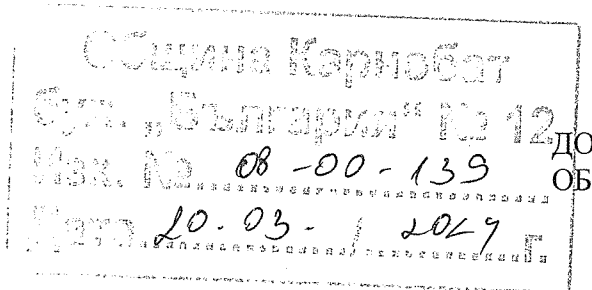 Община Карнобат
бул. „България“ № 12
Изх. № 08-00-139
Дата 20.03. / 2024 г.
ДО
ОБ